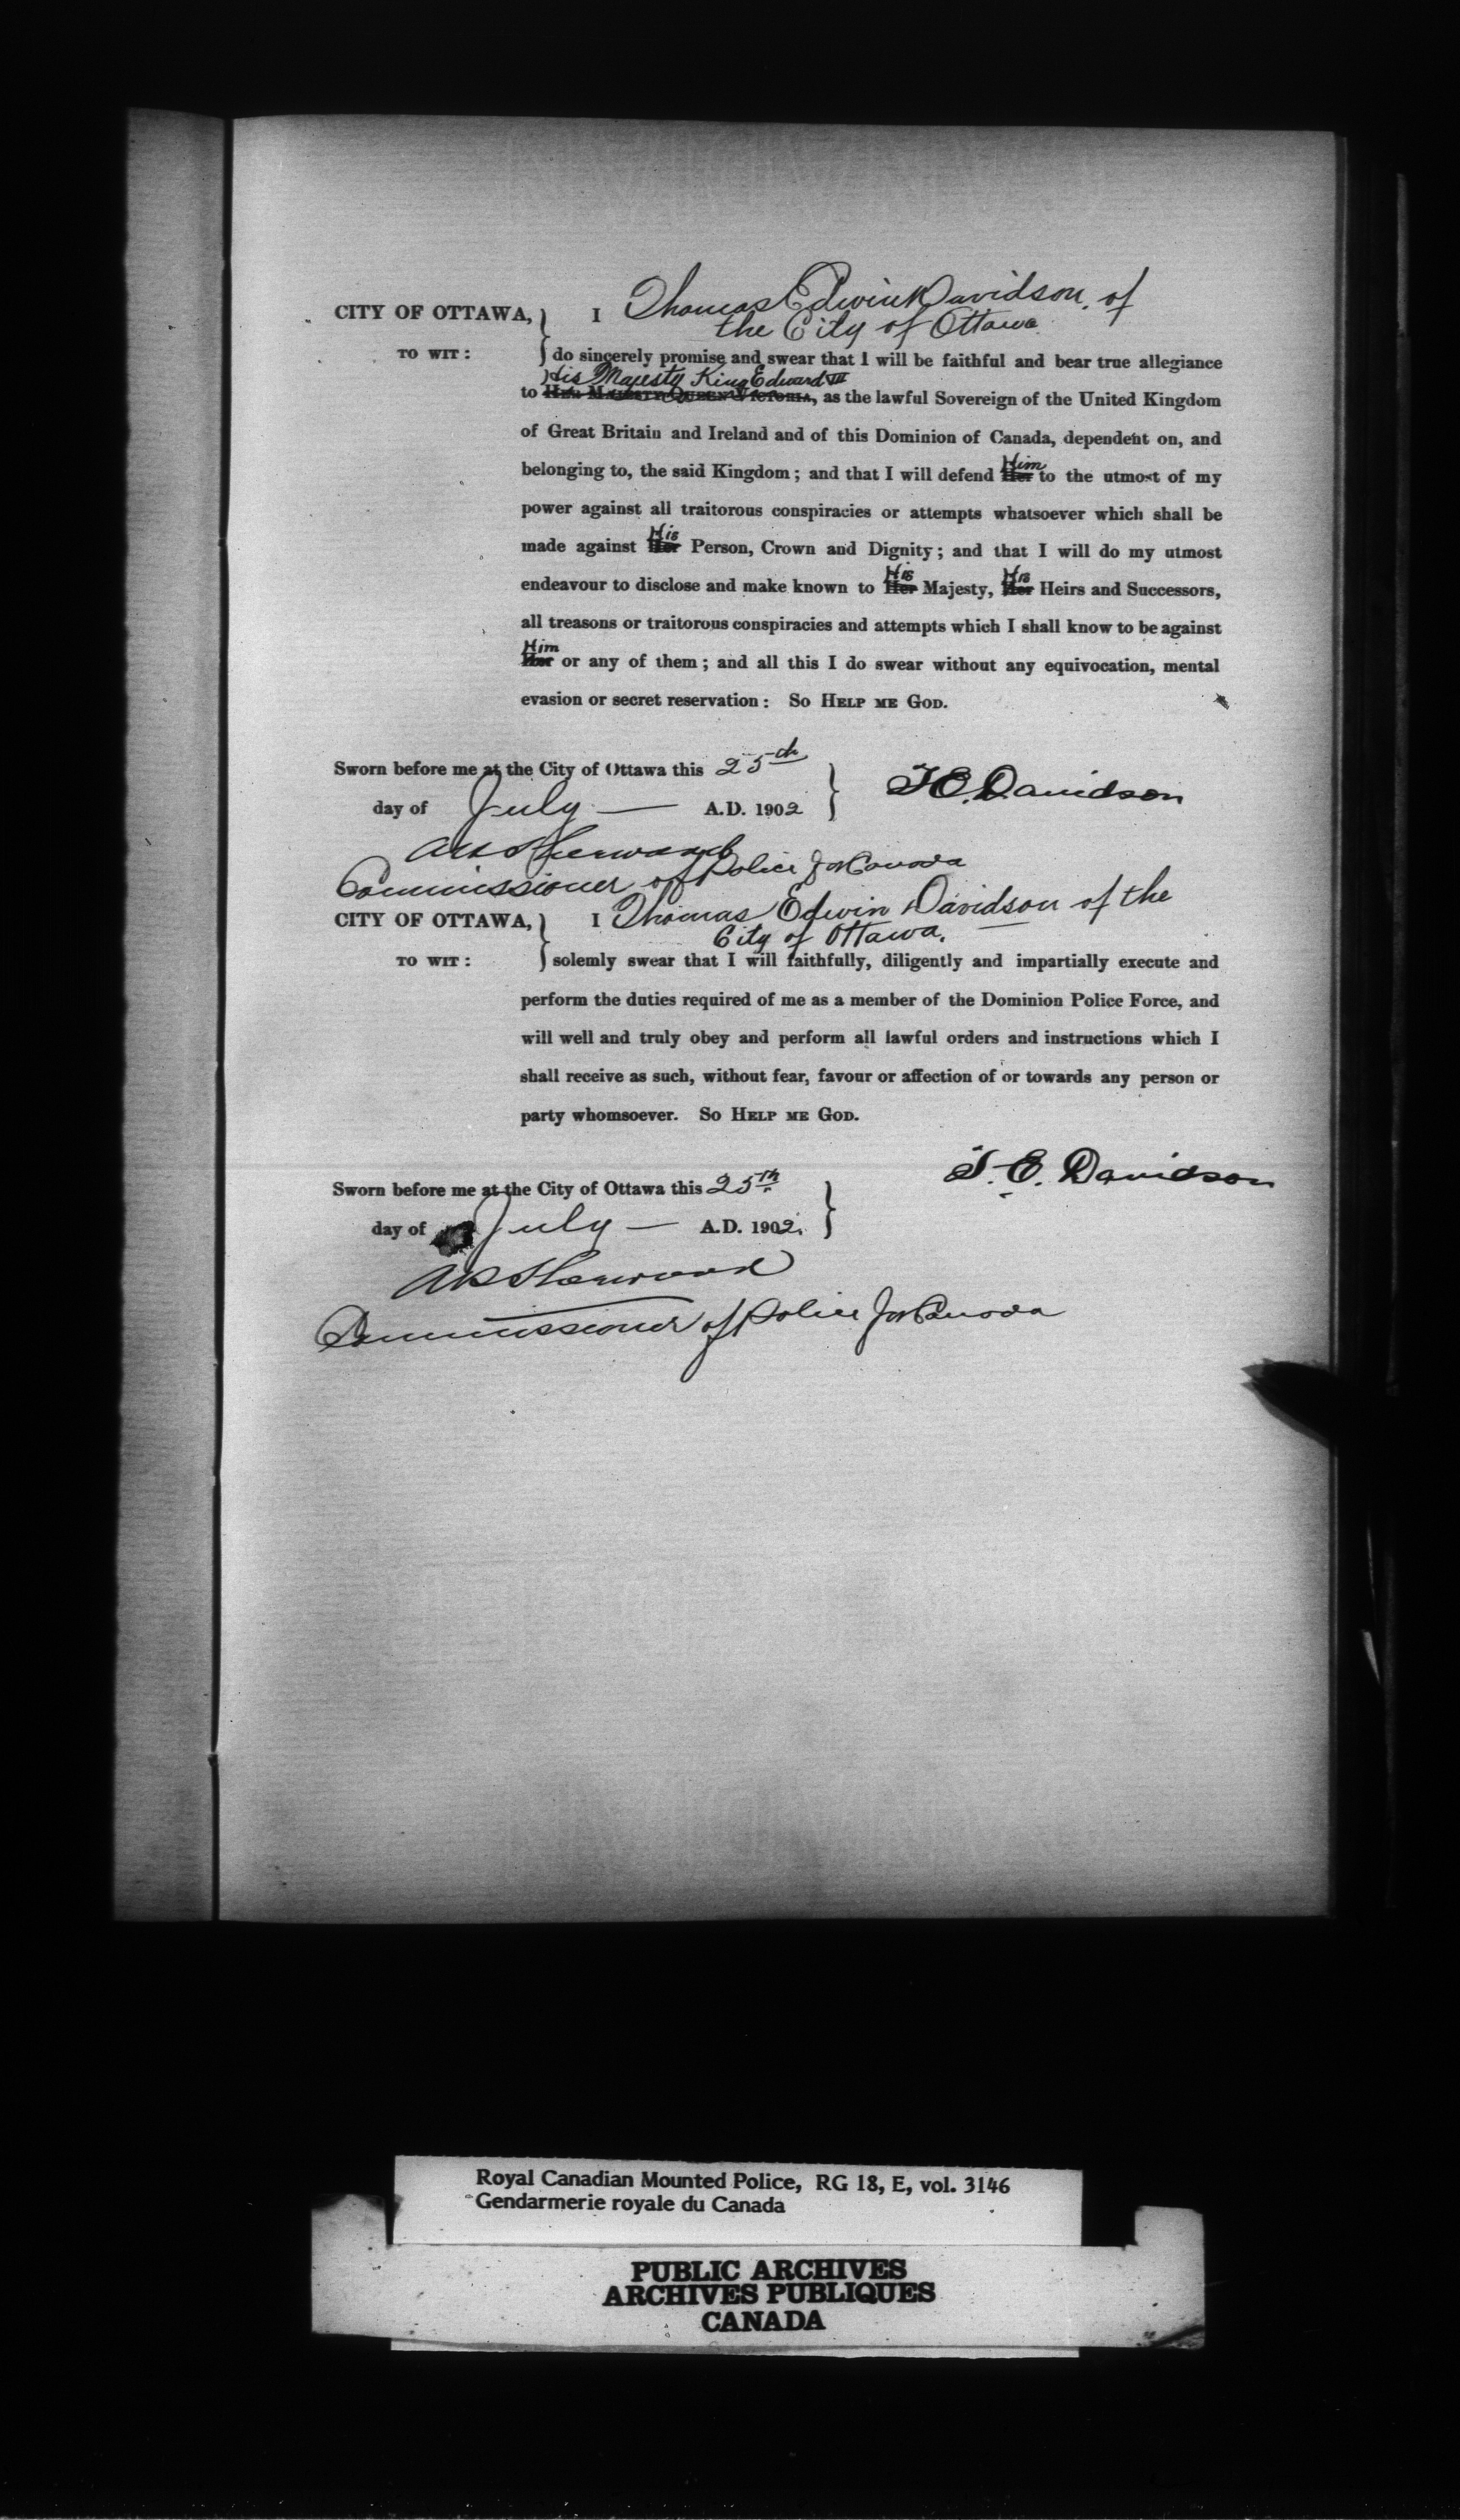 CITY OF OTTAWA, I Thomas Edwin Davidson, of
the City of Ottawa
TO WIT: do sincerely promise and swear that I will be faithful and bear true allegiance
His Majesty King Edward VII
to Her Majesty Queen Victoria, as the lawful Sovereign of the United Kingdom
of Great Britain and Ireland and of this Dominion of Canada, dependent on, and
Him
belonging to, the said Kingdom; and that I will defend Her to the utmost of my
power against all traitorous conspiracies or attempts whatsoever which shall be
His
made against Her Person, Crown and Dignity; and that I will do my utmost
His His
endeavour to disclose and make known to Her Majesty, Her Heirs and Successors,
all treasons or traitorous conspiracies and attempts which I shall know to be against
Him
Her or any of them; and all this I do swear without any equivocation, mental
evasion or secret reservation: So Help me God.
Sworn before me at the City of Ottawa this 25th
day of July — A.D. 1902
T E. Davidson
A P Sherwood
Commissioner of Police for Canada
CITY OF OTTAWA, I Thomas Edwin Davidson of the
City of Ottawa.
TO WIT: solemly swear that I will faithfully, diligently and impartially execute and
perform the duties required of me as a member of the Dominion Police Force, and
will well and truly obey and perform all lawful orders and instructions which I
shall receive as such, without fear, favour or affection of or towards any person or
party whomsoever. So Help me God.
T. E. Davidson
Sworn before me at the City of Ottawa this 25th
day of July — A.D. 1902.
A P Sherwood
Commissioner of Police for Canada
Royal Canadian Mounted Police, RG 18, E, vol. 3146
Gendarmerie royale du Canada
PUBLIC ARCHIVES
ARCHIVES PUBLIQUES
CANADA